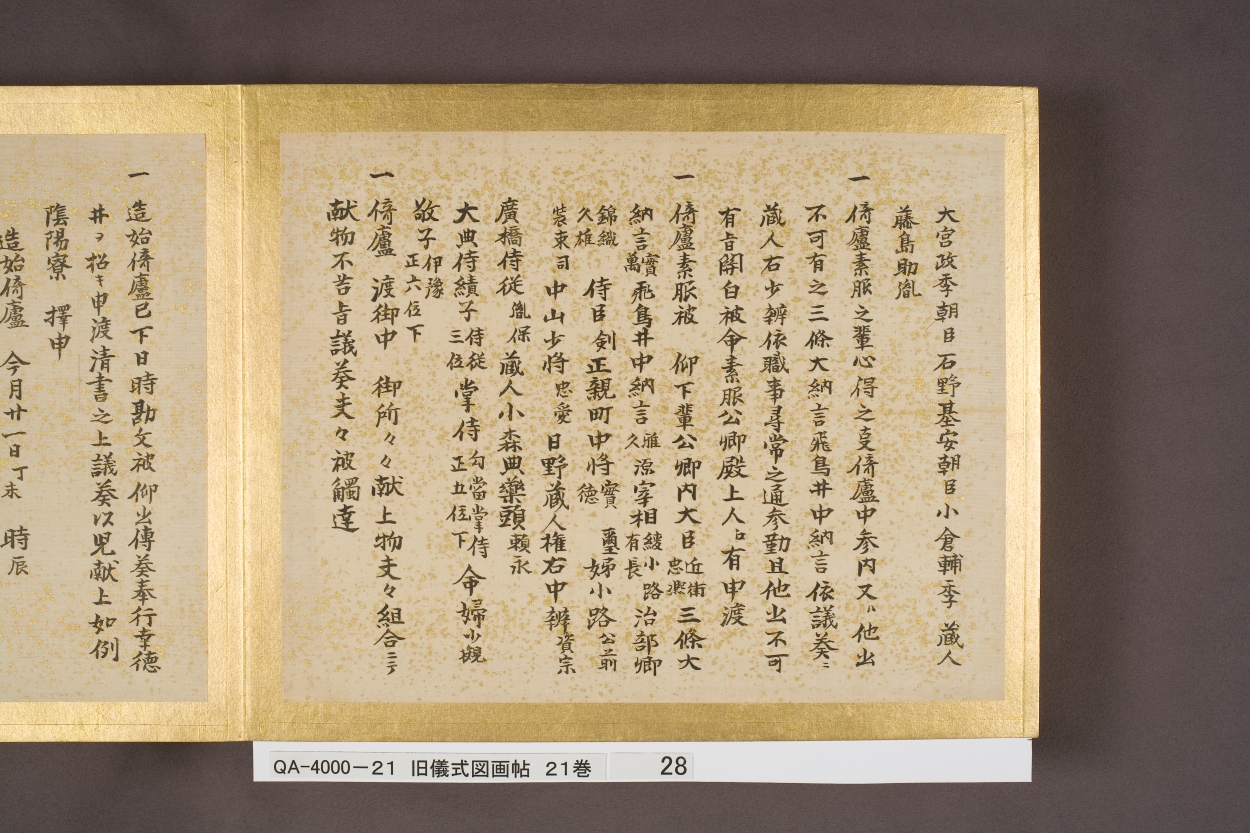 大宮政季朝臣石野基安朝臣小倉輔季 蔵人
藤島助胤
一 倚廬素服之輩心得之支倚廬中参内又ハ他出
不可有之三條大納言飛鳥井中納言依議奏ニ
蔵人右少辨依職事尋常之通参勤且他出不可
有旨関白被命素服公卿殿上人占有申渡
一 倚廬素服被 仰下輩公卿内大臣近衛忠煕三條大
納言實萬飛鳥井中納言雅久源宰相綾小路有長治部卿
錦織久雄 侍臣 剣正親町中将實徳 璽姉小路公前
装束司 中山少将忠愛日野蔵人権右中辨資宗
廣橋侍従胤保蔵人小森典薬頭頼永
大典侍績子侍従三位掌侍勾當掌侍正五位下命婦
敬子伊豫正六位下
一 倚廬 渡御中 御所々々献上物支々組合ニテ
献物不苦旨議奏支々被觸達
一 造始倚廬已下日時勘文被 仰出傳奏奉行幸徳
井ヲ招キ申渡清書之上議奏以児献上如例
陰陽寮 擇申
造始倚廬 今月廿一日丁未 時辰
QA-4000-21 旧儀式図画帖 21巻 28